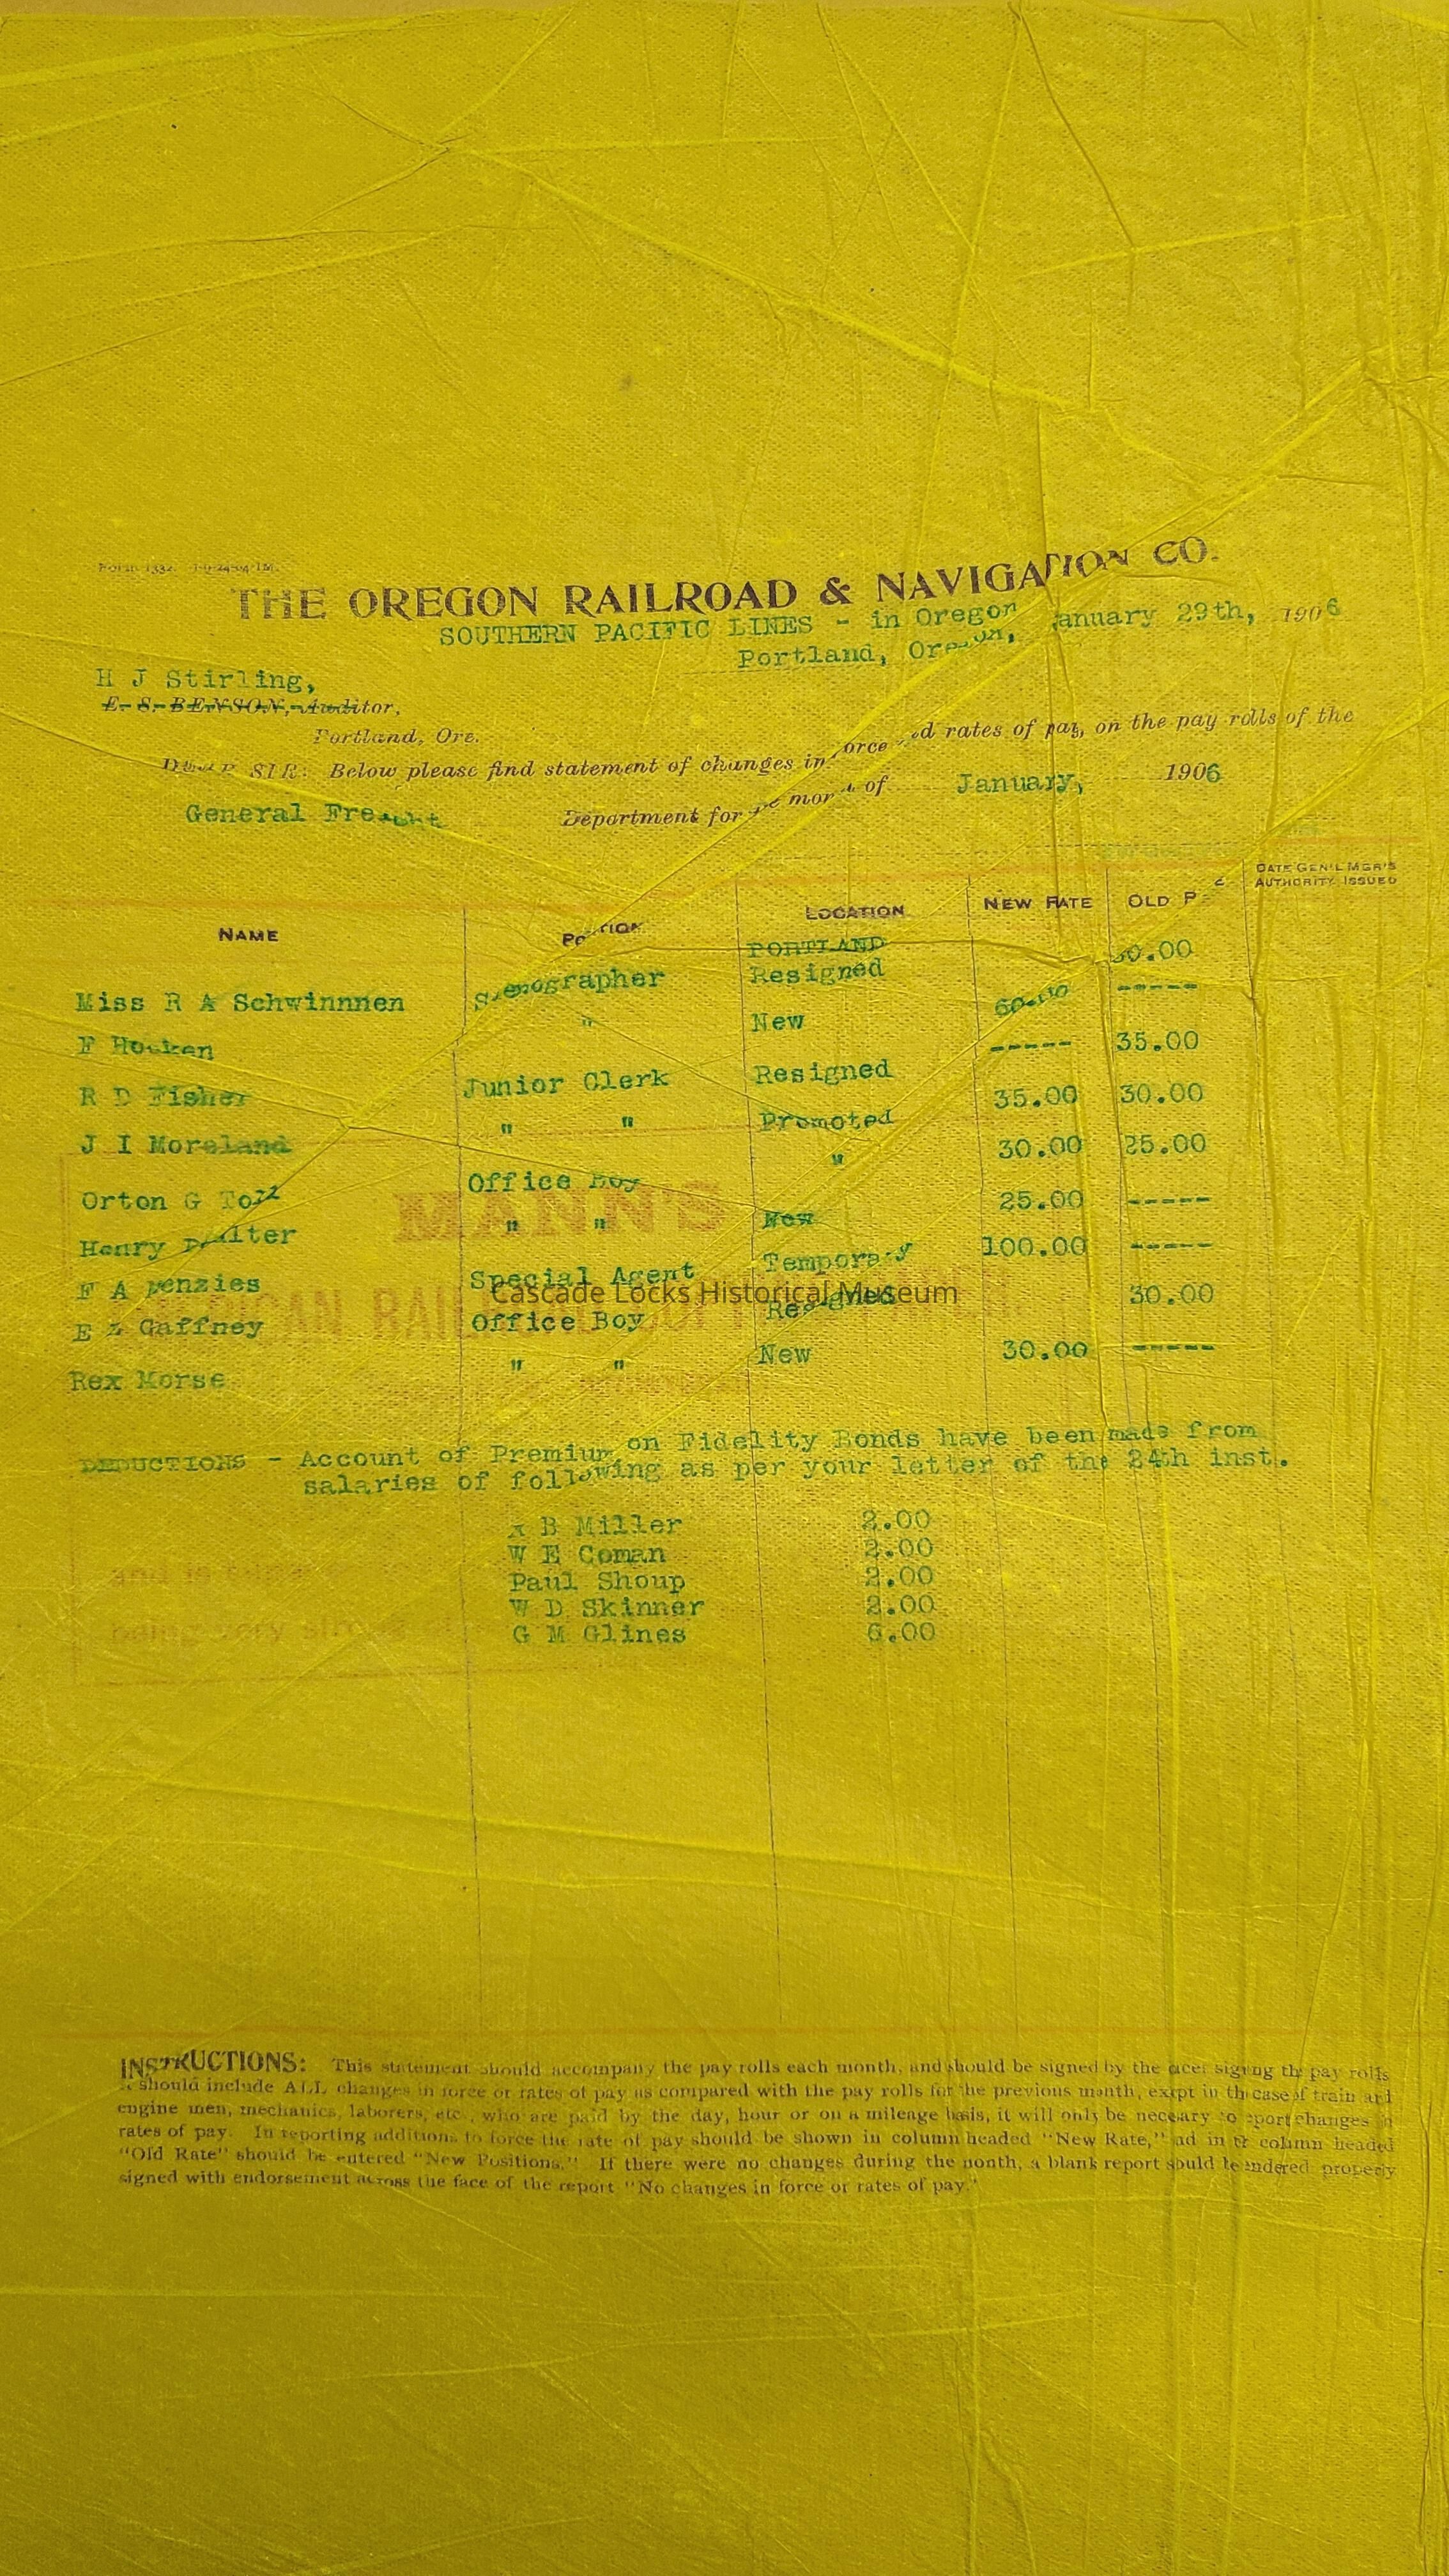 THE OREGON RAILROAD & NAVIGATION CO.
SOUTHERN PACIFIC LINES - in Oregon
Portland, Oregon, January 29th, 1906
H J Stirling,
E. S. BENSON, Auditor,
Portland, Ore.
DEAR SIR: Below please find statement of changes in force and rates of pay, on the pay rolls of the
General Freight Department for the month of January, 1906
NAME POSITION LOCATION NEW RATE OLD RATE DATE GEN'L MGR'S AUTHORITY ISSUED
PORTLAND
Miss R A Schwinnnen Stenographer Resigned 60.00
F Houken " New 60.00 -----
R D Fisher Junior Clerk Resigned ----- 35.00
J I Moreland " " Promoted 35.00 30.00
Orton G Office Boy " 30.00 25.00
Henry " " New 25.00 -----
F A Menzies Special Agent Temporary 100.00 -----
E Gaffney Office Boy Resigned 30.00
Rex Morse " " New 30.00 -----
DEDUCTIONS - Account of Premium on Fidelity Bonds have been made from
salaries of following as per your letter of the 24th inst.
B Miller 2.00
W E Coman 2.00
Paul Shoup 2.00
W D Skinner 2.00
G M Glines 6.00
MANN'S
Cascade Locks Historical Museum
INSTRUCTIONS: This statement should accompany the pay rolls each month, and should be signed by the officer signing the pay rolls
It should include ALL changes in force or rates of pay as compared with the pay rolls for the previous month, except in the case of train and
engine men, mechanics, laborers, etc., who are paid by the day, hour or on a mileage basis, it will only be necessary to report changes in
rates of pay. In reporting additions to force the rate of pay should be shown in column headed "New Rate," and in the column headed
"Old Rate" should be entered "New Positions." If there were no changes during the month, a blank report should be rendered properly
signed with endorsement across the face of the report "No changes in force or rates of pay."